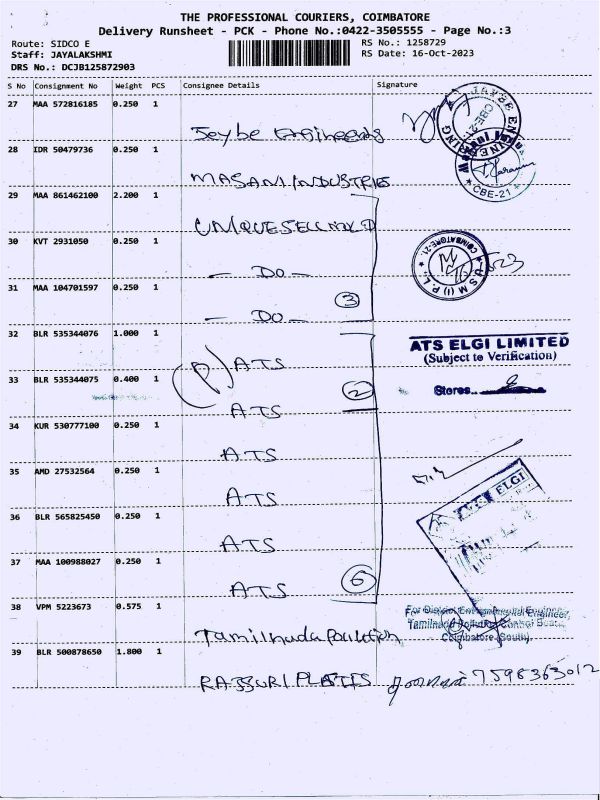 THE PROFESSIONAL COURIERS, COIMBATORE
Delivery Runsheet - PCK - Phone No.:0422-3505555 - Page No.:3
Route: SIDCO E
RS No.: 1258729
Staff: JAYALAKSHMI
RS Date: 16-Oct-2023
DRS No.: DCJB125872903
S No Consignment No Weight PCS Consignee Details Signature
27 MAA 572816185 0.250 1
Jeybe Engineers
JAYBE ENGINEERING
CBE-21
28 IDR 50479736 0.250 1
MASANI INDUSTRIES
29 MAA 861462100 2.200 1
30 KVT 2931050 0.250 1
— DO —
COIMBATORE-21.
U S M (I) P L
31 MAA 104701597 0.250 1
3
— DO —
32 BLR 535344076 1.000 1
ATS
ATS ELGI LIMITED
(Subject to Verification)
33 BLR 535344075 0.400 1
(P)
2
Stores..
ATS
34 KUR 530777100 0.250 1
ATS
35 AMD 27532564 0.250 1
ATS
ELGI
36 BLR 565825450 0.250 1
ATS
37 MAA 100988027 0.250 1
6
ATS
38 VPM 5223673 0.575 1
For District Environmental Engineer,
Tamilnadu Pollution Control Board
Coimbatore (South)
Tamilnadu Pollution
39 BLR 500878650 1.800 1
RAJSURI PLATES 7598363012